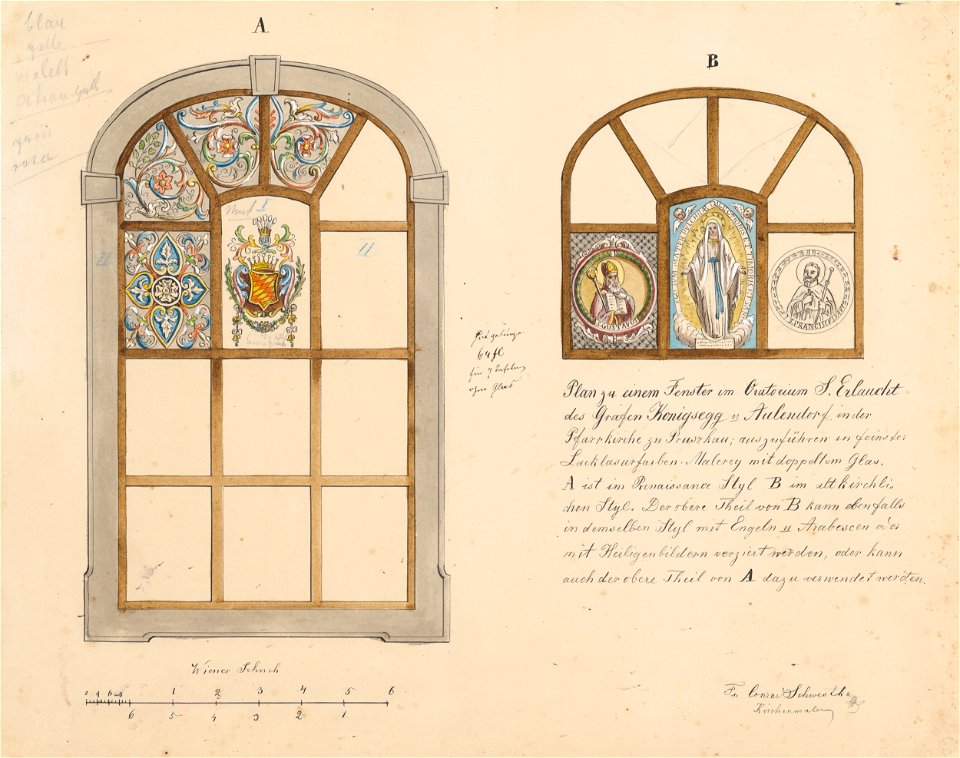 blau
gelb
violett
grün
rosa
A
B
II
II
64 fl
ohne Glas
S. FRANCISC
Plan zu einem Fenster im Oratorium S. Erlaucht
des Grafen Königsegg u Aulendorf in der
Pfarrkirche zu Pruszkau; auszuführen in feinster
Lacklasurfarben-Malerey mit doppeltem Glas.
A ist im Renaissance Styl B im altkirchli-
chen Styl. Der obere Theil von B kann ebenfalls
in demselben Styl mit Engeln u Arabescen oder
mit Heiligenbildern verziert werden, oder kann
auch der obere Theil von A dazu verwendet werden.
Wiener Schuh
0 1 2 3 4 5 6
6 5 4 3 2 1
Fr Conrad
Kirchenmaler